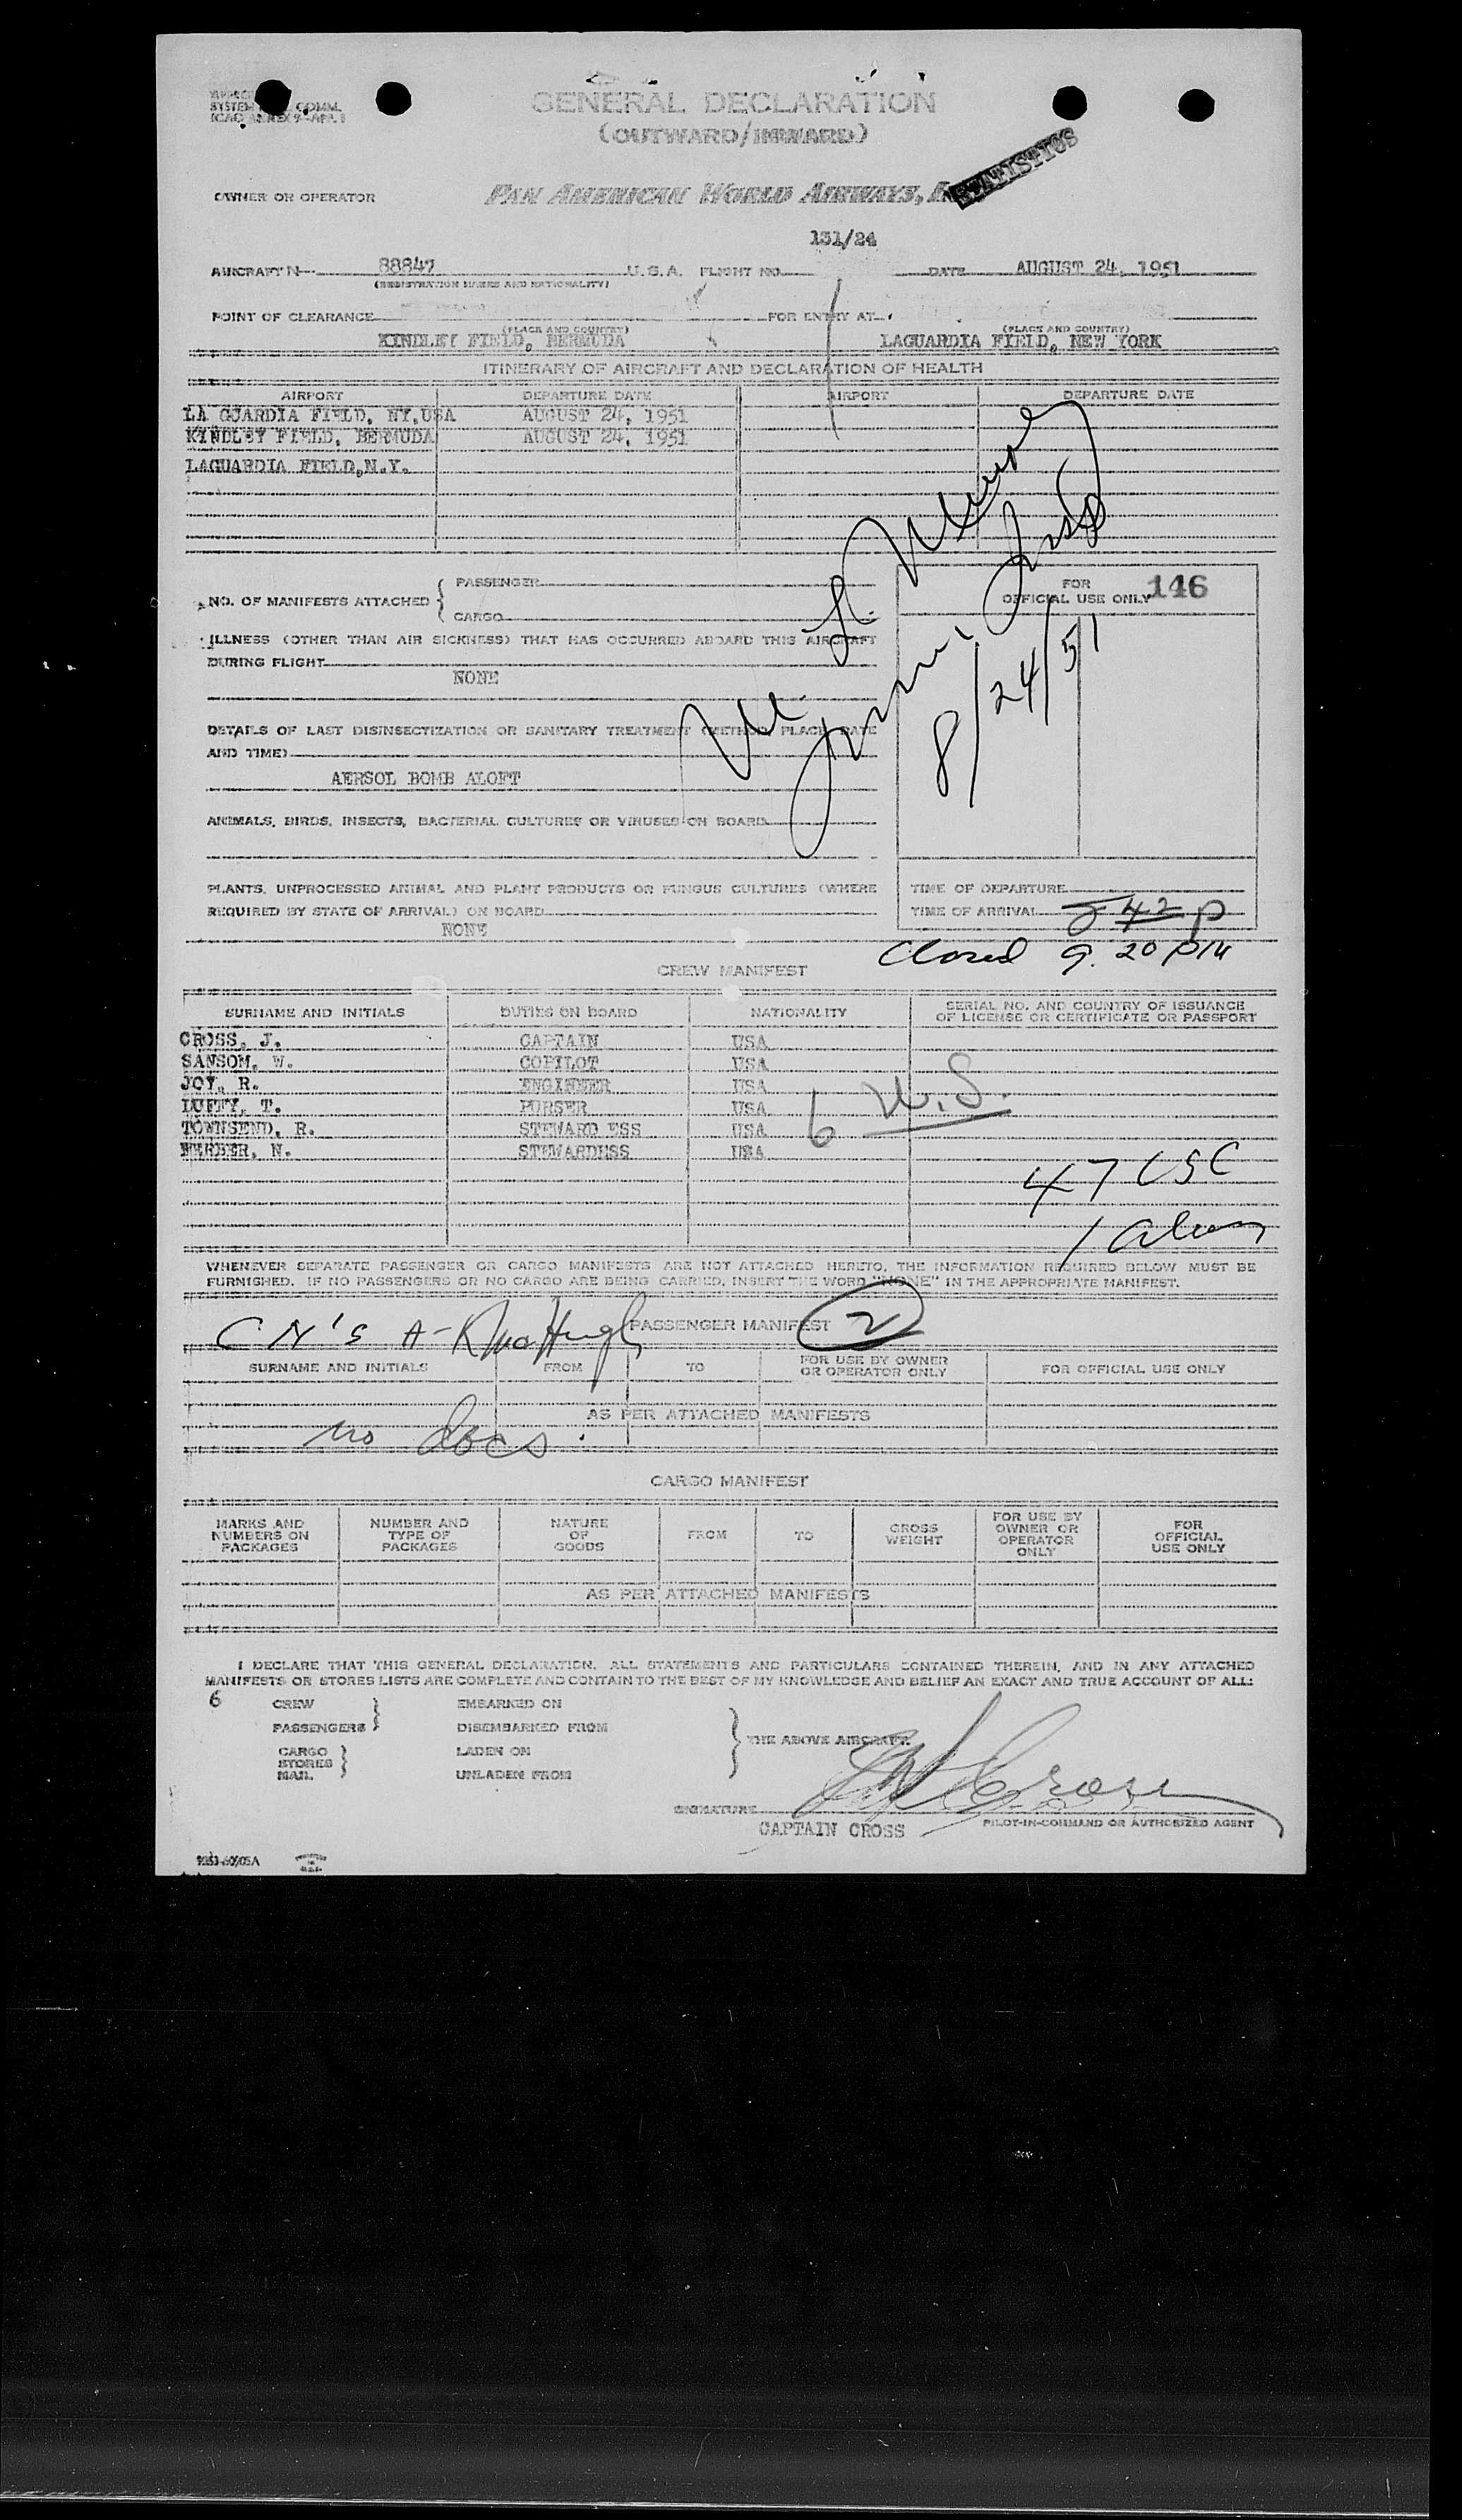 SYSTEM COMM.
ICAO ANNEX 9-APP. 1
GENERAL DECLARATION
(OUTWARD/INWARD)
STATISTICS
OWNER OR OPERATOR PAN AMERICAN WORLD AIRWAYS,
131/24
AIRCRAFT N- 88847 U.S.A. FLIGHT NO. DATE AUGUST 24, 1951
(REGISTRATION MARKS AND NATIONALITY)
POINT OF CLEARANCE FOR ENTRY AT
(PLACE AND COUNTRY) (PLACE AND COUNTRY)
KINDLEY FIELD, BERMUDA LAGUARDIA FIELD, NEW YORK
ITINERARY OF AIRCRAFT AND DECLARATION OF HEALTH
AIRPORT DEPARTURE DATE AIRPORT DEPARTURE DATE
LA GUARDIA FIELD, NY,USA AUGUST 24, 1951
KINDLEY FIELD, BERMUDA AUGUST 24, 1951
LAGUARDIA FIELD,N.Y.
NO. OF MANIFESTS ATTACHED { PASSENGER
CARGO
FOR OFFICIAL USE ONLY 146
ILLNESS (OTHER THAN AIR SICKNESS) THAT HAS OCCURRED ABOARD THIS AIRCRAFT
DURING FLIGHT
NONE
8/24/51
DETAILS OF LAST DISINSECTIZATION OR SANITARY TREATMENT (METHOD, PLACE, DATE
AND TIME)
AERSOL BOMB ALOFT
ANIMALS, BIRDS, INSECTS, BACTERIAL CULTURES OR VIRUSES ON BOARD
PLANTS, UNPROCESSED ANIMAL AND PLANT PRODUCTS OR FUNGUS CULTURES (WHERE
REQUIRED BY STATE OF ARRIVAL) ON BOARD
NONE
TIME OF DEPARTURE
TIME OF ARRIVAL 42 P
Closed 9.20 PM
CREW MANIFEST
SURNAME AND INITIALS DUTIES ON BOARD NATIONALITY SERIAL NO. AND COUNTRY OF ISSUANCE OF LICENSE OR CERTIFICATE OR PASSPORT
CROSS, J. CAPTAIN USA
SANSOM, W. COPILOT USA
JOY, R. ENGINEER USA
LUFTY, T. PURSER USA
TOWNSEND, R. STEWARD ESS USA
N. STEWARDESS USA
6 U.S.
47 USC
1 alien
WHENEVER SEPARATE PASSENGER OR CARGO MANIFESTS ARE NOT ATTACHED HERETO, THE INFORMATION REQUIRED BELOW MUST BE
FURNISHED. IF NO PASSENGERS OR NO CARGO ARE BEING CARRIED, INSERT THE WORD "NONE" IN THE APPROPRIATE MANIFEST.
PASSENGER MANIFEST 2
SURNAME AND INITIALS FROM TO FOR USE BY OWNER OR OPERATOR ONLY FOR OFFICIAL USE ONLY
AS PER ATTACHED MANIFESTS
no docs.
CARGO MANIFEST
MARKS AND NUMBERS ON PACKAGES NUMBER AND TYPE OF PACKAGES NATURE OF GOODS FROM TO GROSS WEIGHT FOR USE BY OWNER OR OPERATOR ONLY FOR OFFICIAL USE ONLY
AS PER ATTACHED MANIFESTS
I DECLARE THAT THIS GENERAL DECLARATION, ALL STATEMENTS AND PARTICULARS CONTAINED THEREIN, AND IN ANY ATTACHED
MANIFESTS OR STORES LISTS ARE COMPLETE AND CONTAIN TO THE BEST OF MY KNOWLEDGE AND BELIEF AN EXACT AND TRUE ACCOUNT OF ALL:
6 CREW EMBARKED ON
PASSENGERS DISEMBARKED FROM
THE ABOVE AIRCRAFT.
CARGO LADEN ON
STORES
MAIL UNLADEN FROM
SIGNATURE
CAPTAIN CROSS PILOT-IN-COMMAND OR AUTHORIZED AGENT